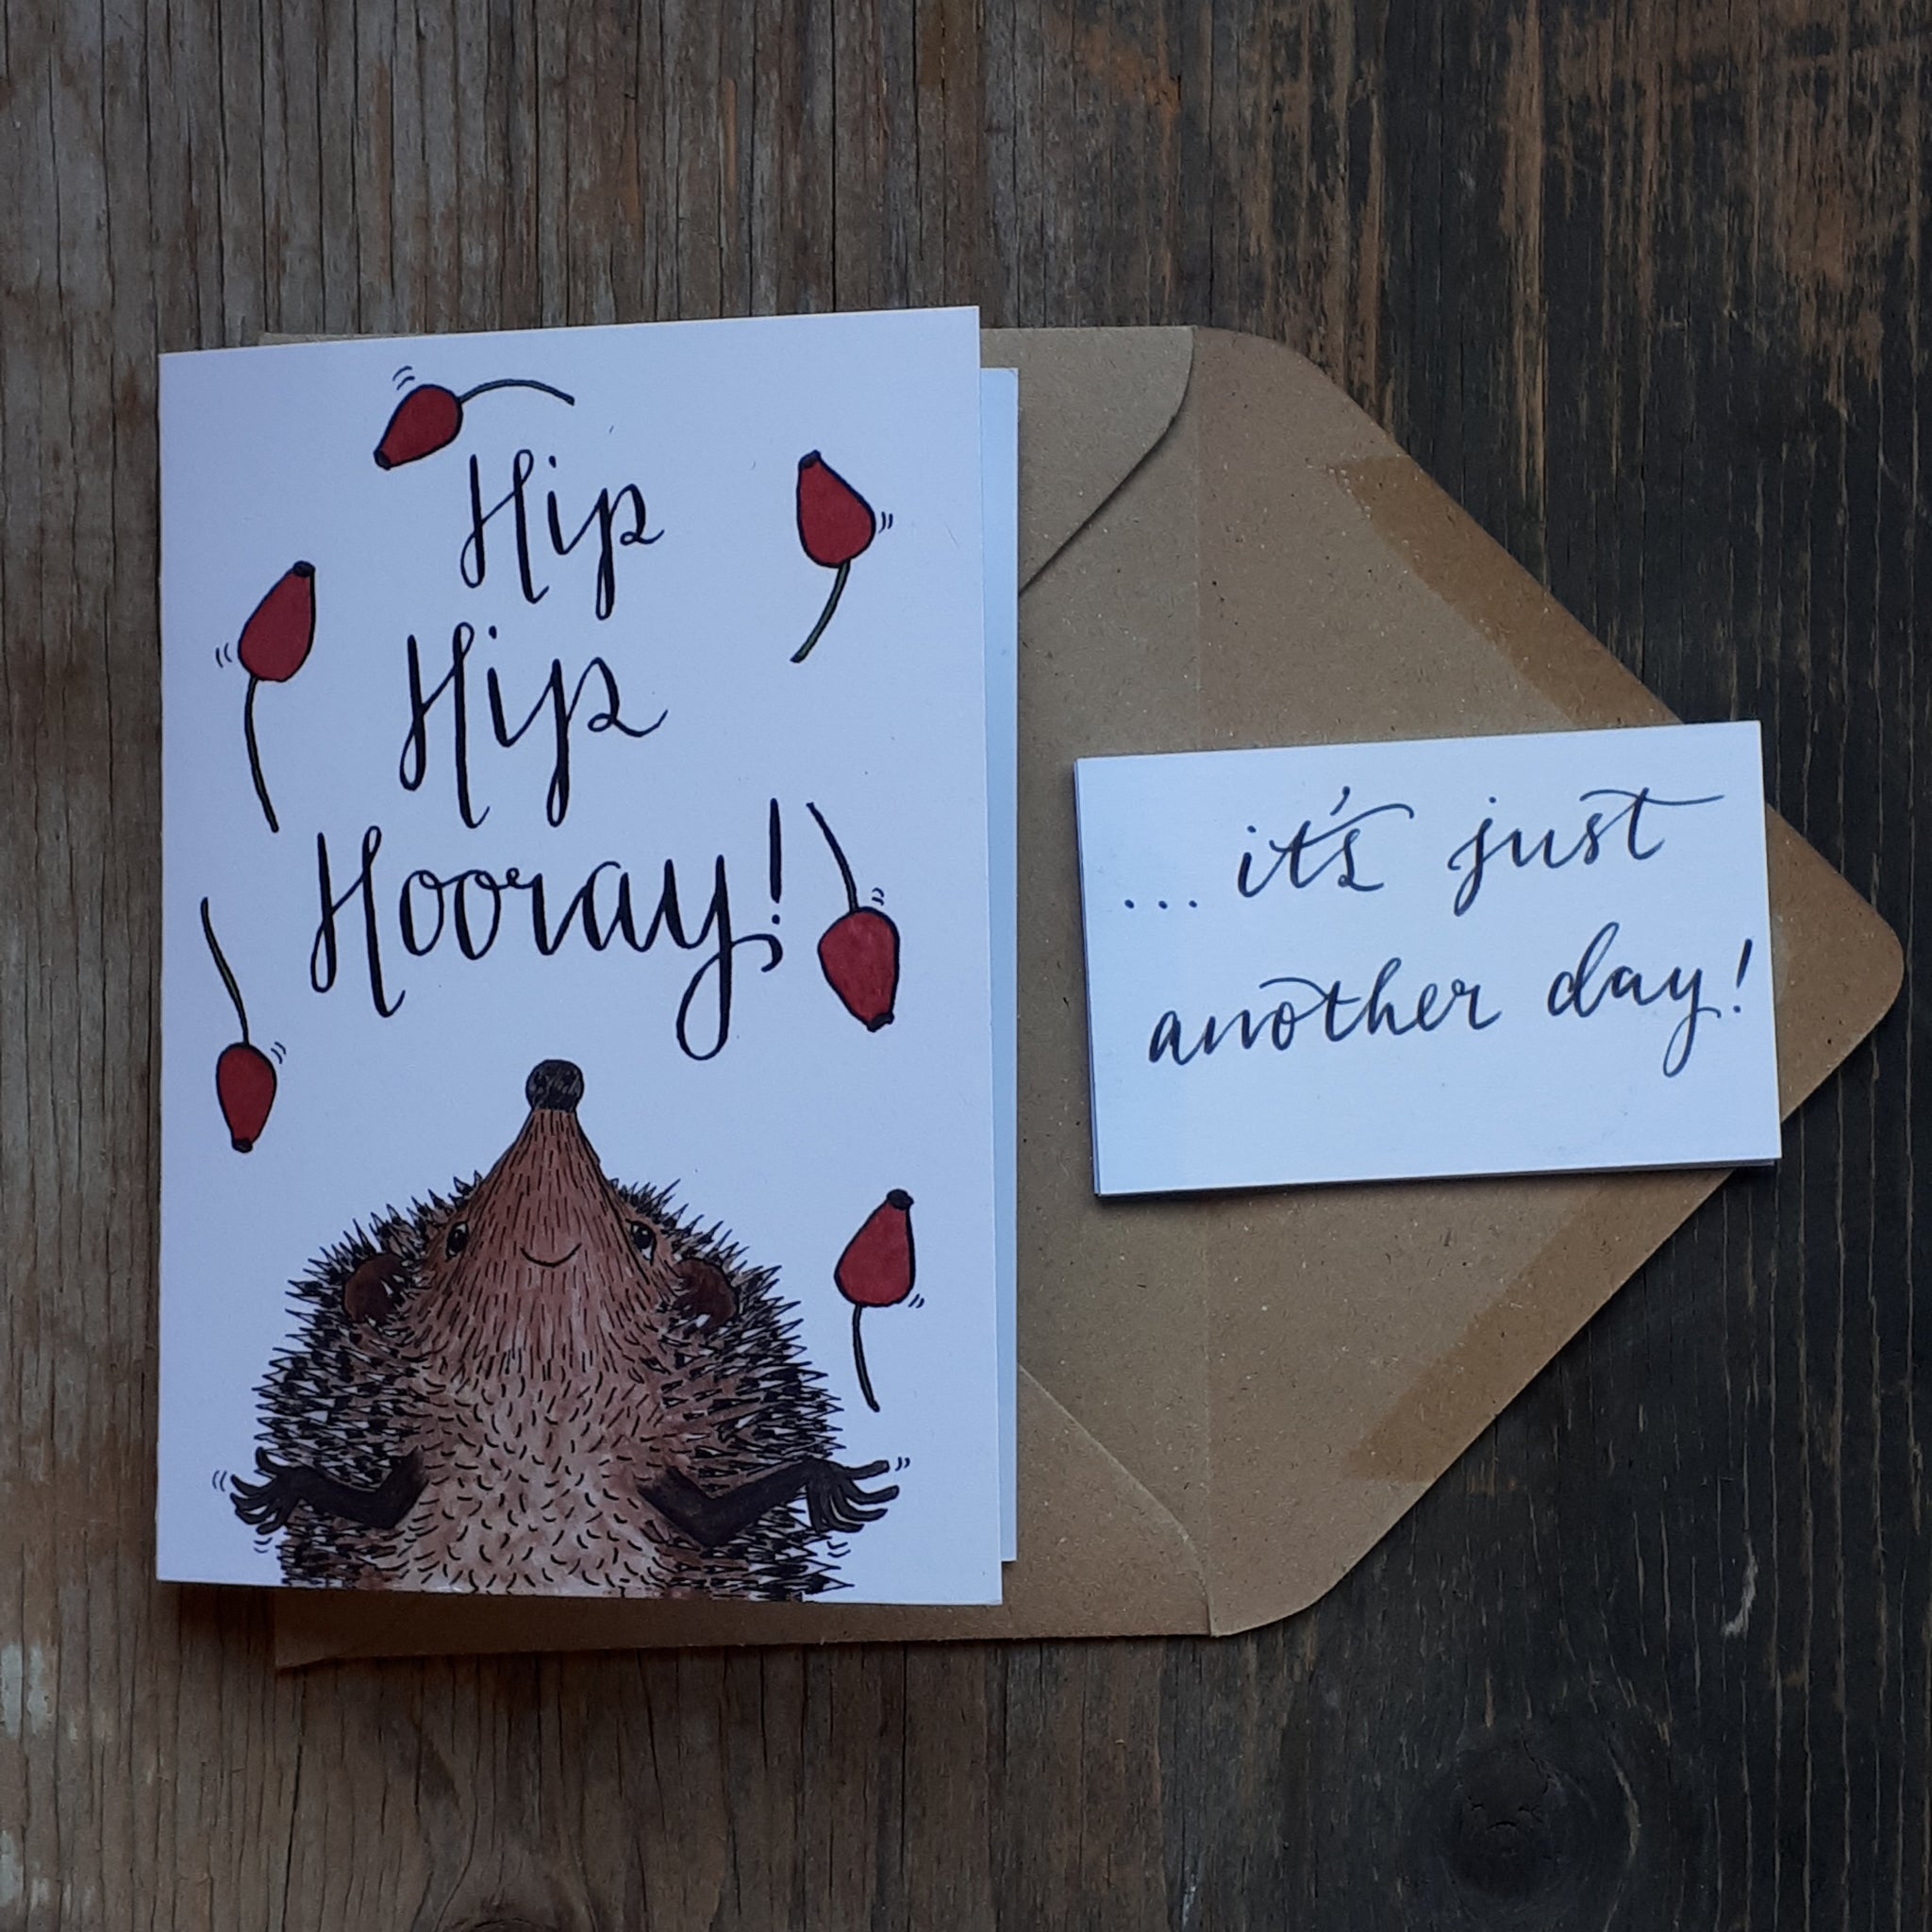 Hip
Hip
Hooray!
... it's just
another day!